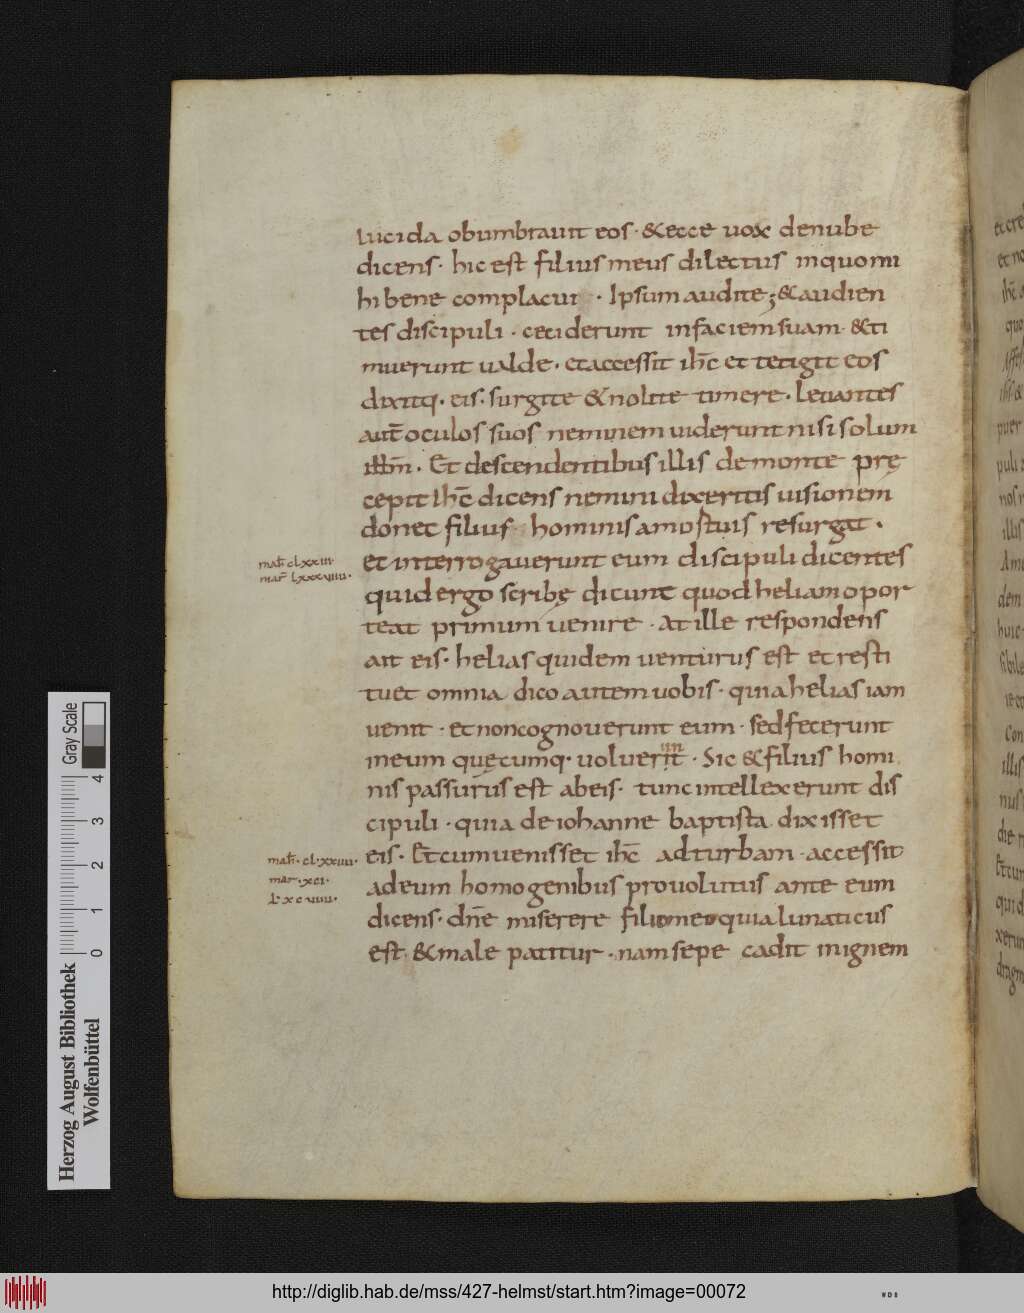 lucida obumbrauit eos · & ecce uox denube
dicens · hic est filius meus dilectus inquomi
hi bene complacui · Ipsum audite; & audien
tes discipuli · ceciderunt infaciem suam · & ti
muerunt ualde · et accessit ihc̄ et tetigit eos
dixitq· eis · surgite & nolite timere · Leuantes
aut̄ oculos suos neminem uiderunt nisi solum
ih̄m · Et descendentibus illis demonte prę
cepit Ihc̄ dicens nemini dixeritis uisionem
donec filius hominis amostuis resurgat ·
mat̄ clxxiii·
mar̄ lxxxviiii·
et interrogauerunt eum discipuli dicentes
quid ergo scribę dicunt quod heliam opor
teat primum uenire · At ille respondens
ait eis · helias quidem uenturus est et resti
tuet omnia dico autem uobis · quia helias iam
uenit · et non cognouerunt eum · sed fecerunt
meum quęcumq· uoluerint · Sic & filius homi
nis passurus est abeis · tunc intellexerunt dis
cipuli · quia de iohanne baptista dixisset
mat̄ · cl·xxiiii·
mar · xci·
eis · Et cum uenisset ihc̄ ad turbam · accessit
ad eum homo genibus prouolutus ante eum
dicens · dn̄e miserere filio meo quia lunaticus
est · & male patitur · nam sepe cadit inignem
Herzog August Bibliothek
Wolfenbüttel
0 1 2 3 4
Gray Scale
http://diglib.hab.de/mss/427-helmst/start.htm?image=00072